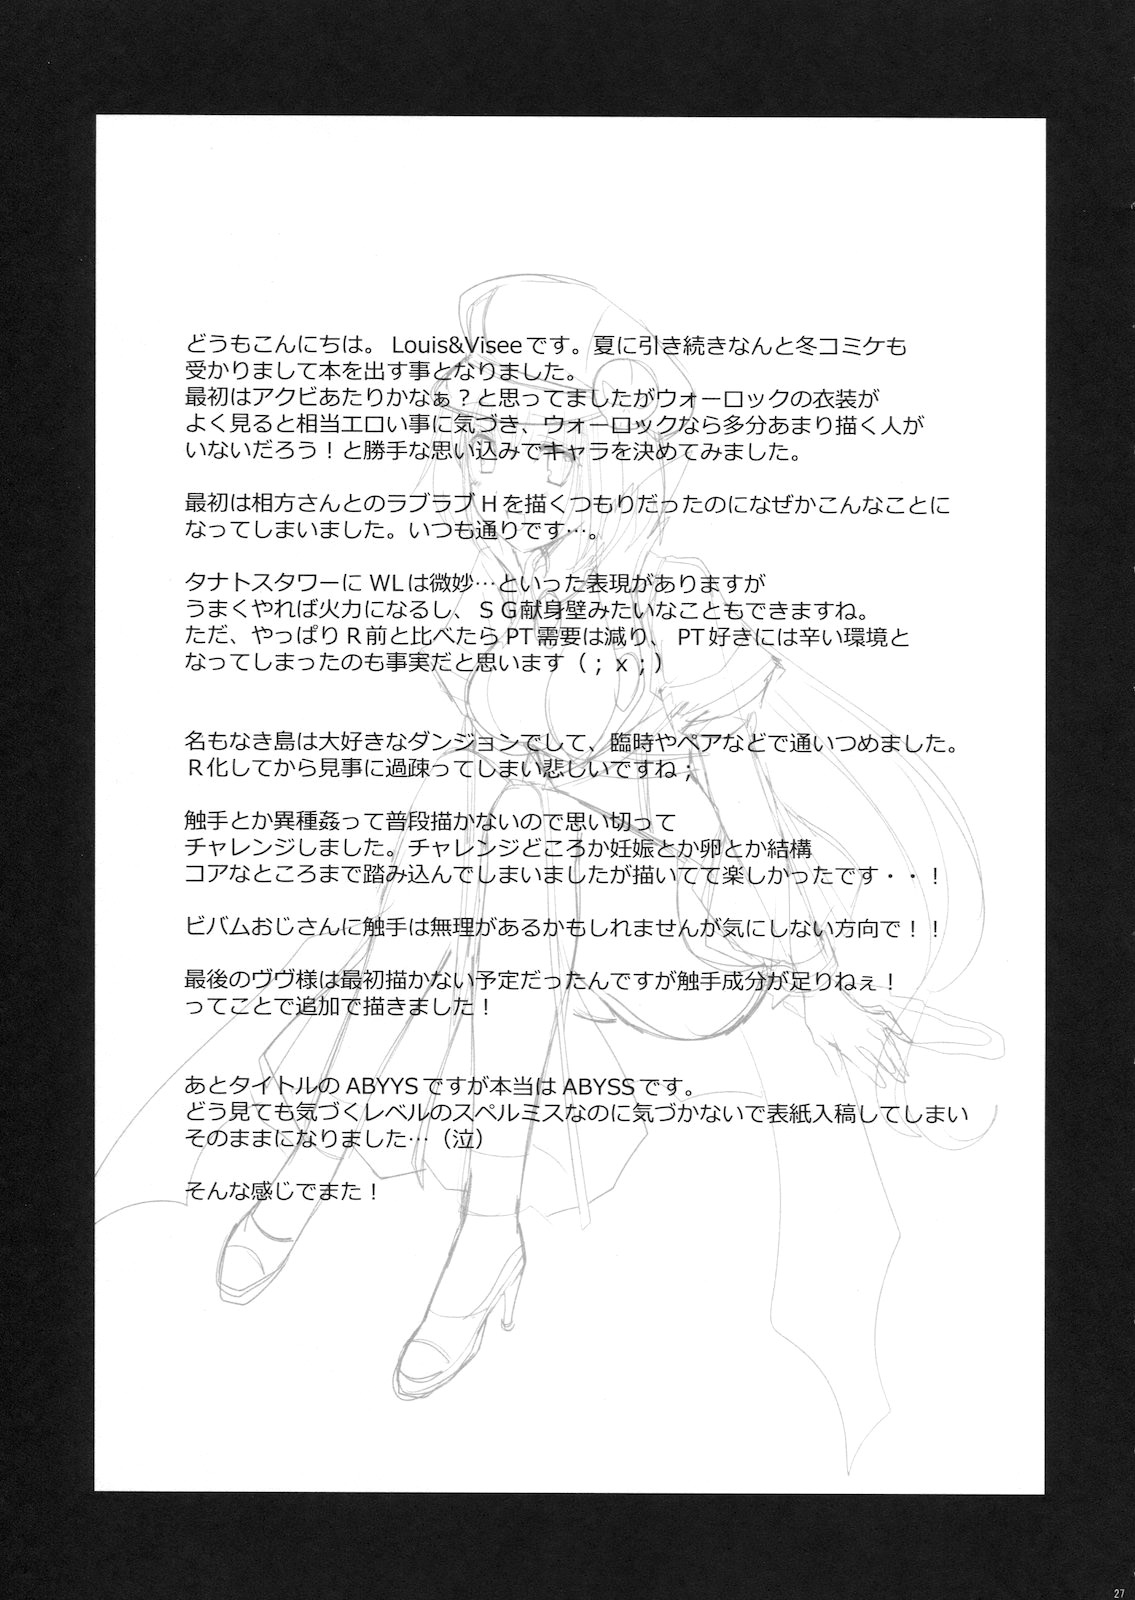 どうもこんにちは。Louis&Viseeです。夏に引き続きなんと冬コミケも
受かりまして本を出す事となりました。
最初はアクビあたりかなぁ？と思ってましたがウォーロックの衣装が
よく見ると相当エロい事に気づき、ウォーロックなら多分あまり描く人が
いないだろう！と勝手な思い込みでキャラを決めてみました。
最初は相方さんとのラブラブＨを描くつもりだったのになぜかこんなことに
なってしまいました。いつも通りです…。
タナトスタワーにWLは微妙…といった表現がありますが
うまくやれば火力になるし、ＳＧ献身壁みたいなこともできますね。
ただ、やっぱりＲ前と比べたらPT需要は減り、PT好きには辛い環境と
なってしまったのも事実だと思います（；ｘ；）
名もなき島は大好きなダンジョンでして、臨時やペアなどで通いつめました。
Ｒ化してから見事に過疎ってしまい悲しいですね；
触手とか異種姦って普段描かないので思い切って
チャレンジしました。チャレンジどころか妊娠とか卵とか結構
コアなところまで踏み込んでしまいましたが描いてて楽しかったです・・！
ビバムおじさんに触手は無理があるかもしれませんが気にしない方向で！！
最後のヴヴ様は最初描かない予定だったんですが触手成分が足りねぇ！
ってことで追加で描きました！
あとタイトルのABYYSですが本当はABYSSです。
どう見ても気づくレベルのスペルミスなのに気づかないで表紙入稿してしまい
そのままになりました…（泣）
そんな感じでまた！
27